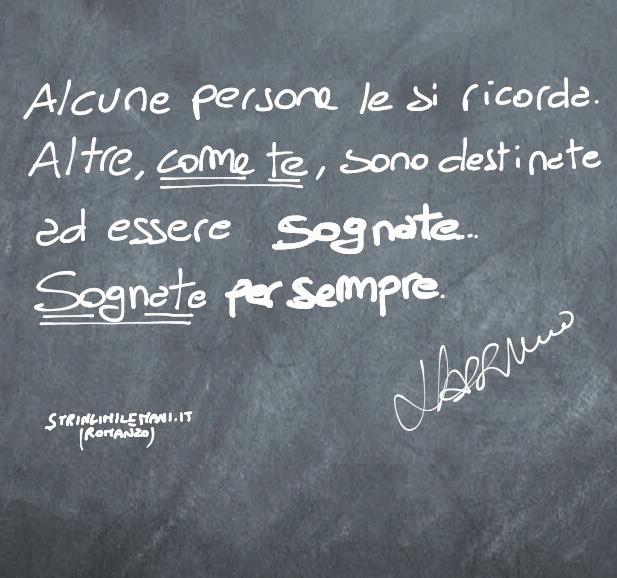 Alcune persone le si ricorda.
Altre, come te, sono destinate
ad essere Sognate..
Sognate per sempre.
STRINGIMILEMANI.IT
(ROMANZO)